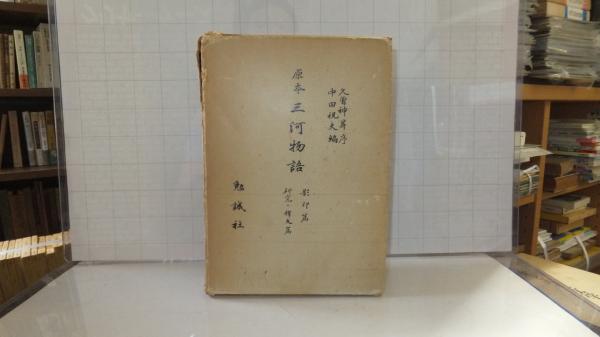 久曽神昇序
中田祝夫編
原本三河物語
影印篇
研究・釈文篇
勉誠社